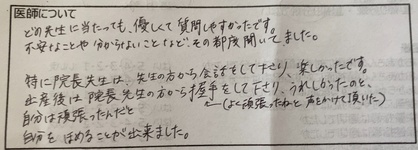 医師について
どの先生に当たっても、優しくて質問しやすかったです。
不安なことや分からないことなど、その都度聞いてました。
特に院長先生は、先生の方から会話をして下さり、楽しかったです。
出産後は院長先生の方から握手をして下さり、うれしかったのと、
自分は頑張ったんだと ←(よく頑張ったねと声をかけて頂いた)
自分をほめることが出来ました。